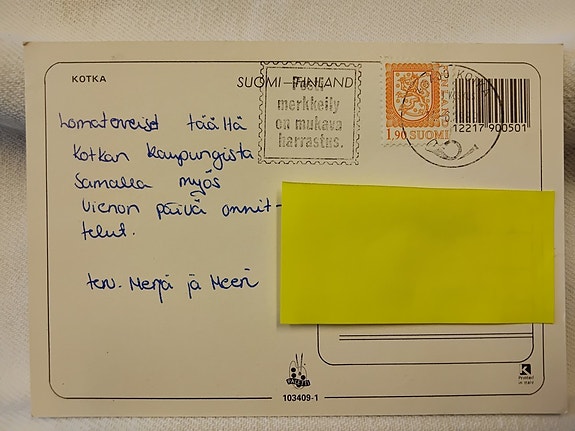 KOTKA
SUOMI—FINLAND
Posti
merkkeily
on mukava
harrastus.
1,90 SUOMI
12217 900501
Lomaterveiset täältä
Kotkan kaupungista
Samalla myös
Vienon päivä onnit-
telut.
terv. Merja jä Meeri
PALETTI
103409-1
K
Printed
in